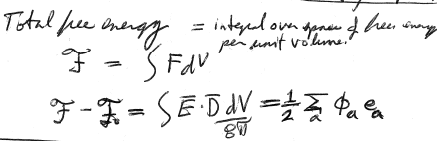 Total free energy = integral over space of free energy
per unit volume.
ℱ = ∫ F dV
ℱ - ℱ₀ = ∫ E̅·D̅ dV/8π = 1/2 Σₐ ϕₐ eₐ